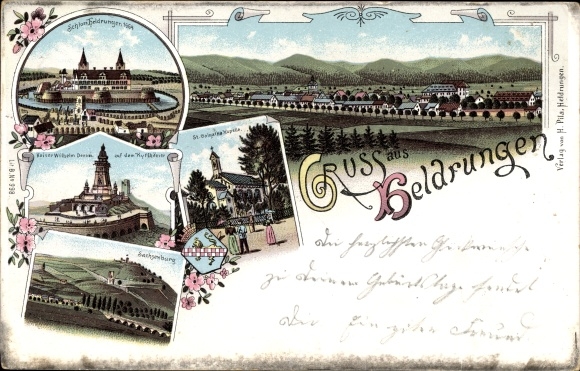 Schloss Heldrungen
Kaiser Wilhelm Denkm. auf dem Kyffhäuser
Kapelle
Sachsenburg
GRUSS aus
Heldrungen
Verlag von H. Pita, Heldrungen.
Die herzlichsten Glückwünsche
zu Deinem Geburtstage sendet
Dir Dein guter Freund